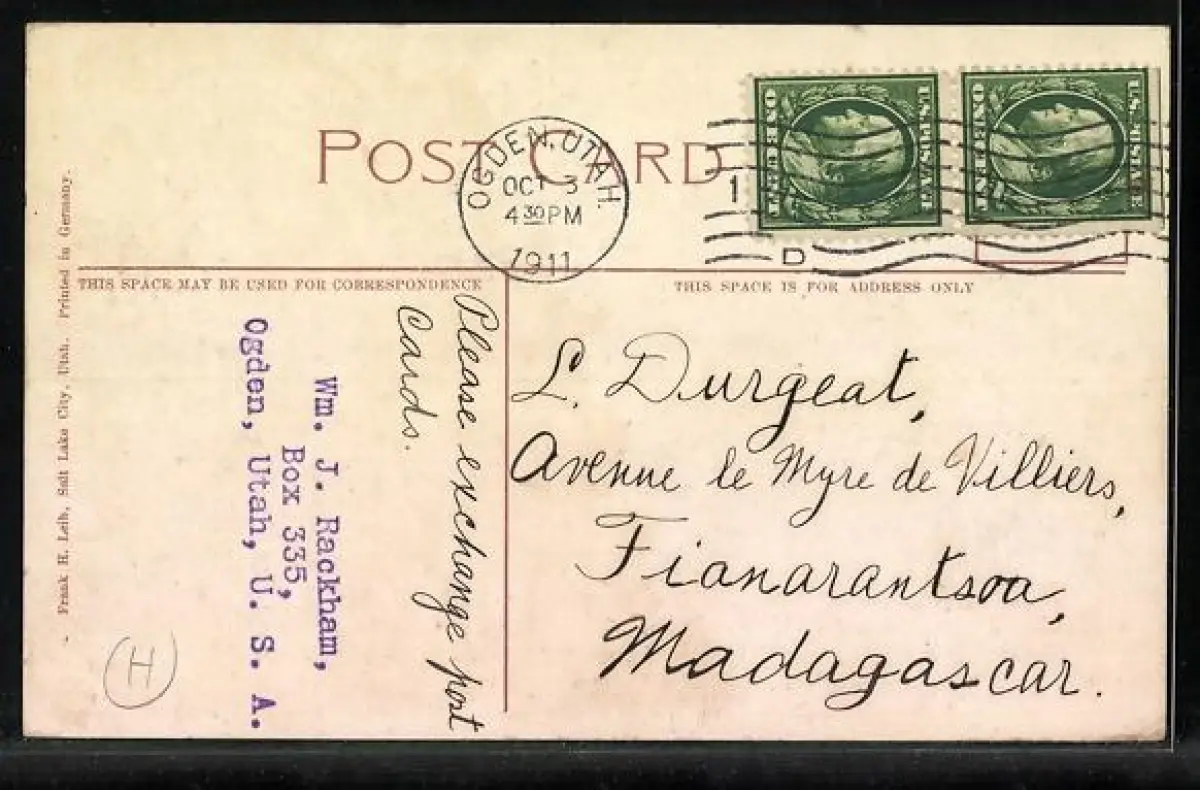 POST CARD
OGDEN, UTAH.
OCT 3
4 30 PM
1911
1
D
U.S. POSTAGE
ONE CENT
U.S. POSTAGE
ONE CENT
THIS SPACE MAY BE USED FOR CORRESPONDENCE
THIS SPACE IS FOR ADDRESS ONLY
Please exchange post
Cards.
Wm. J. Rackham,
Box 335,
Ogden, Utah, U. S. A.
L. Durgeat,
Avenue le Myre de Villiers,
Fianarantsoa,
Madagascar.
Frank H. Leib, Salt Lake City, Utah. Printed in Germany.
H